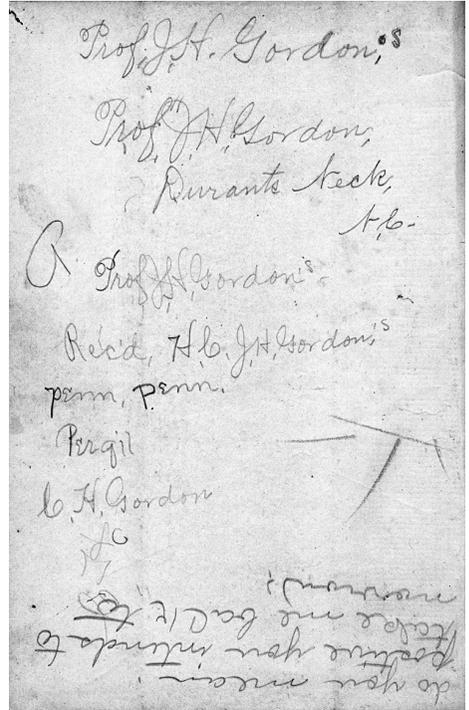 Prof. J. H. Gordon,'s
Prof. J. H. Gordon,
Durants Neck,
N, C.
Prof. J. H. Gordon's
Rec'd, H. C. J. H. Gordon,'s
penn, penn.
C. H. Gordon
do you mean
positive you intends to
take me back to